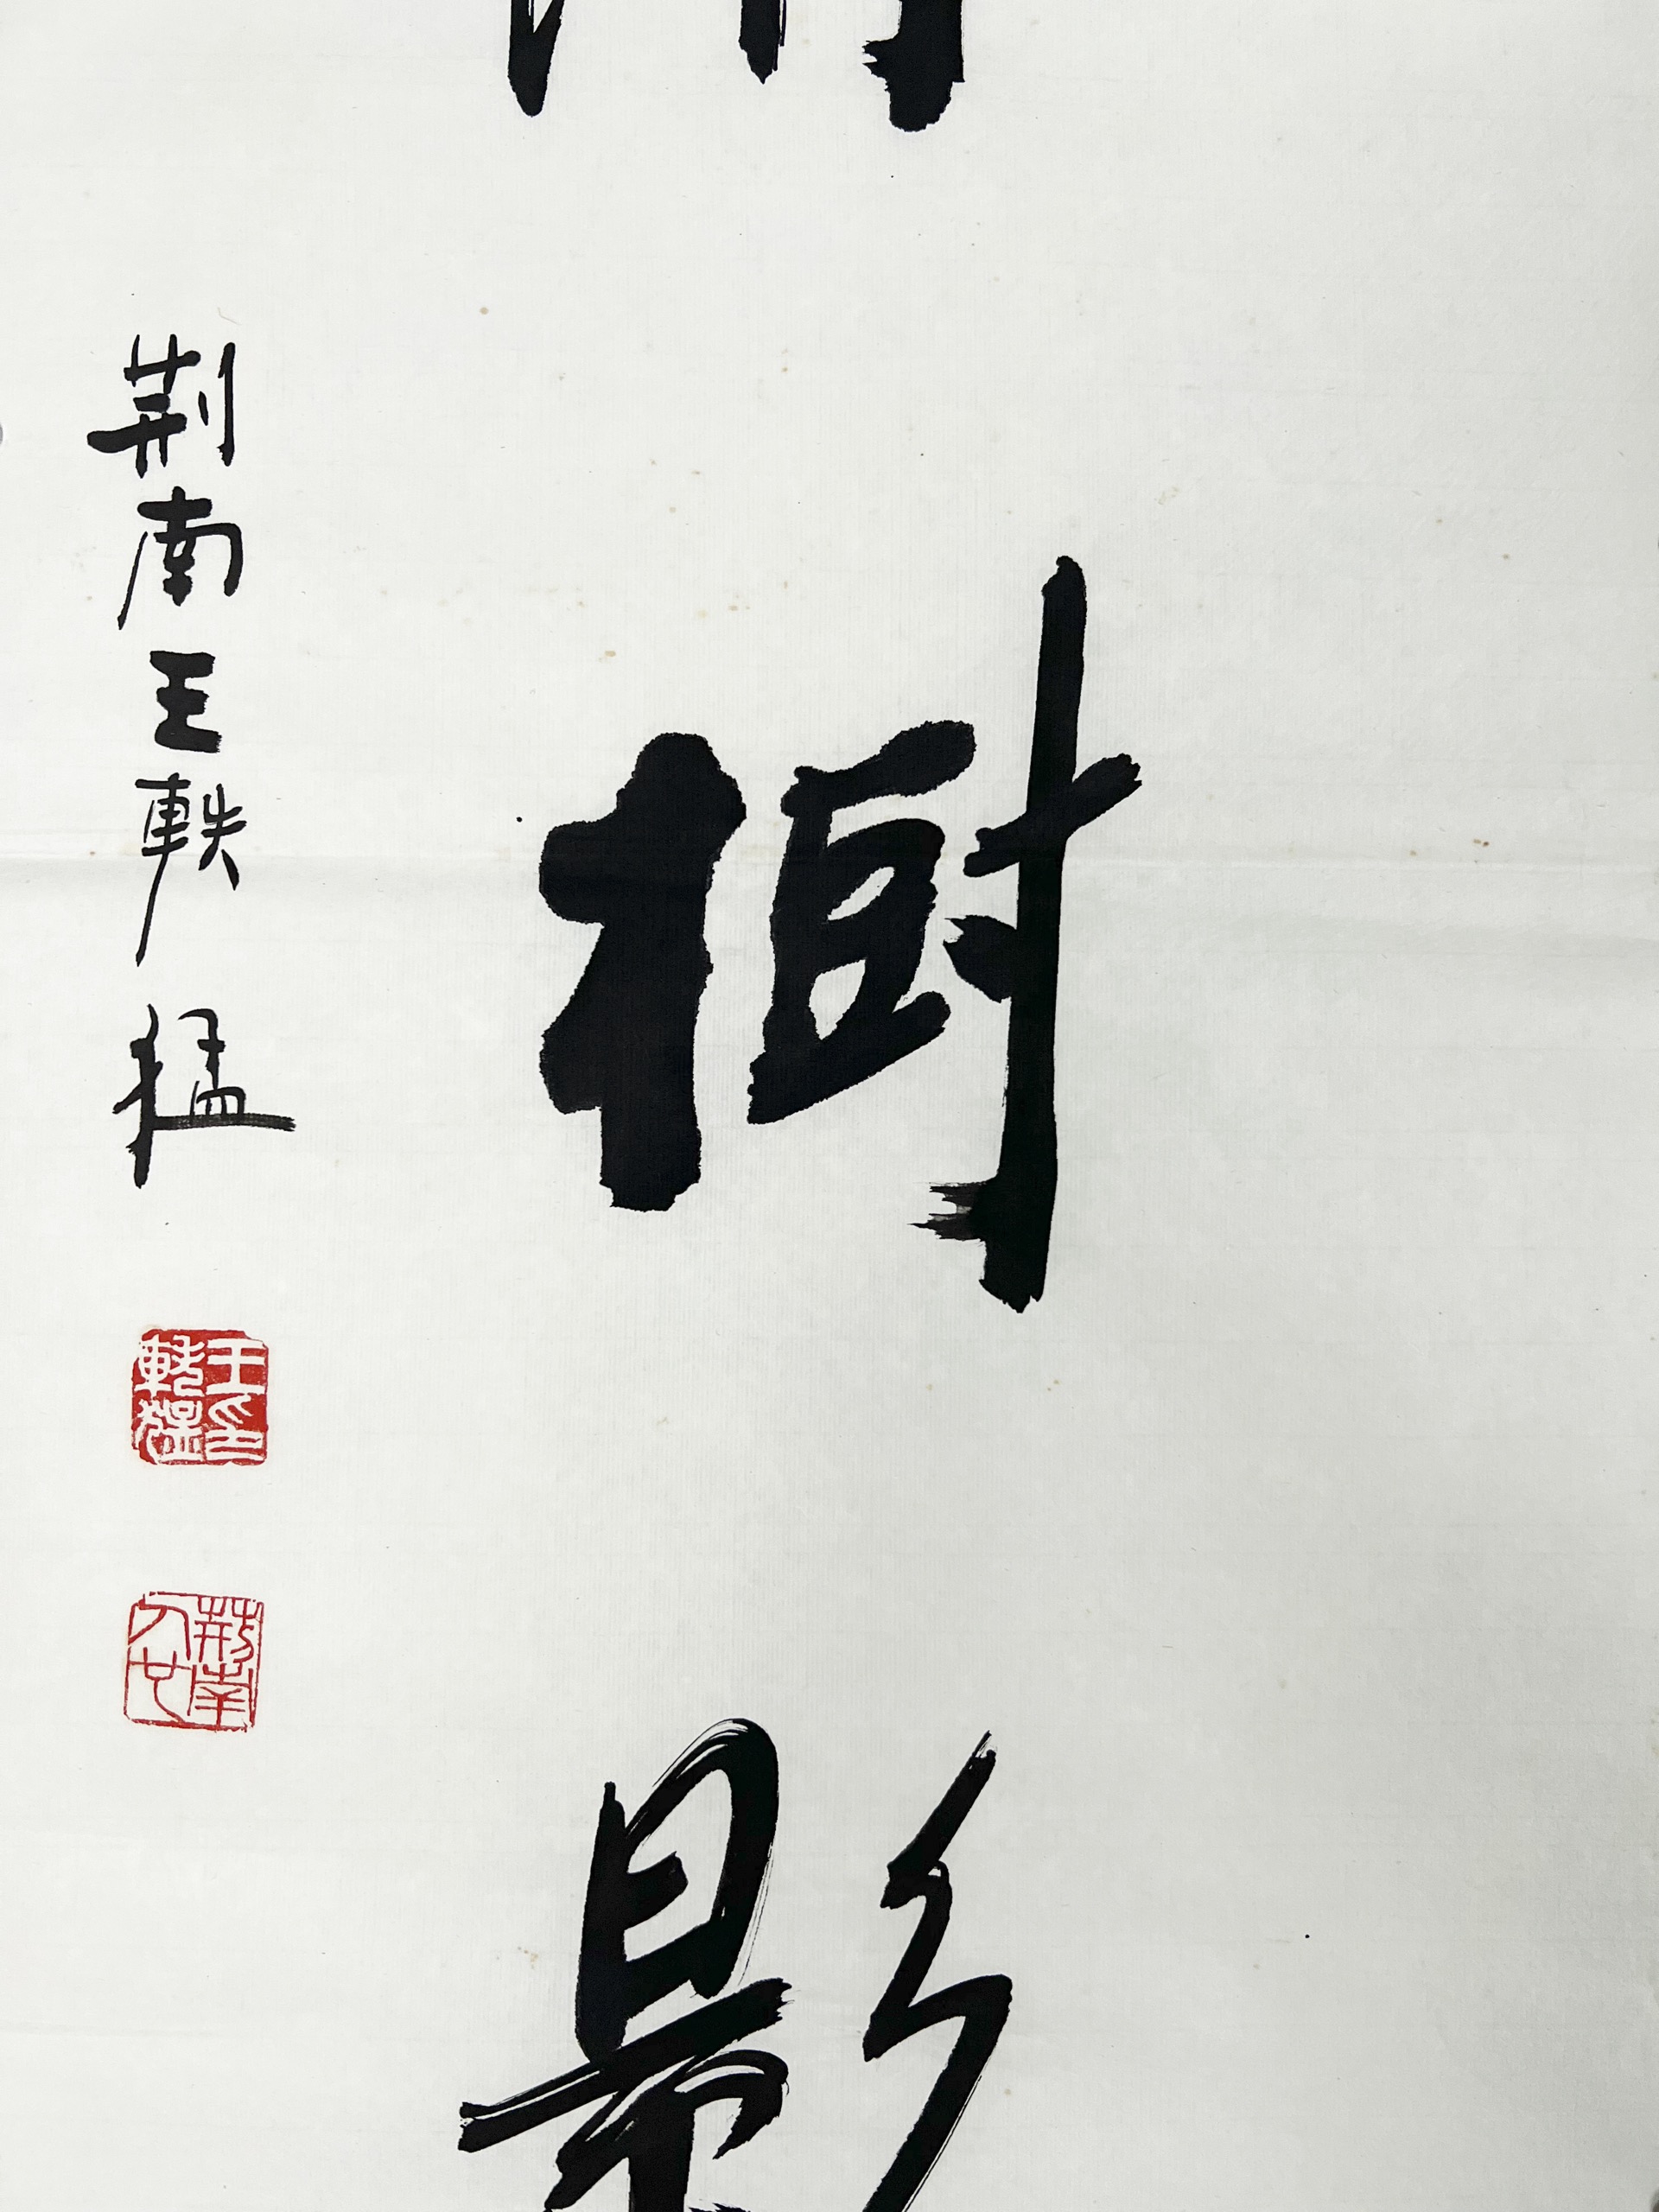 樹影
荆南王軼猛
王軼猛印
荆南